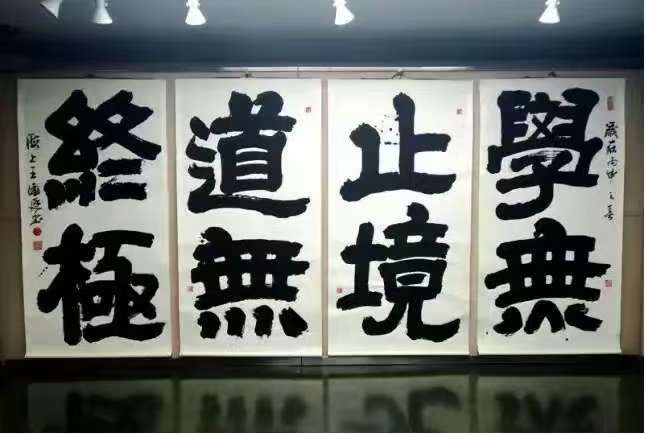 學無
止境
道無
終極